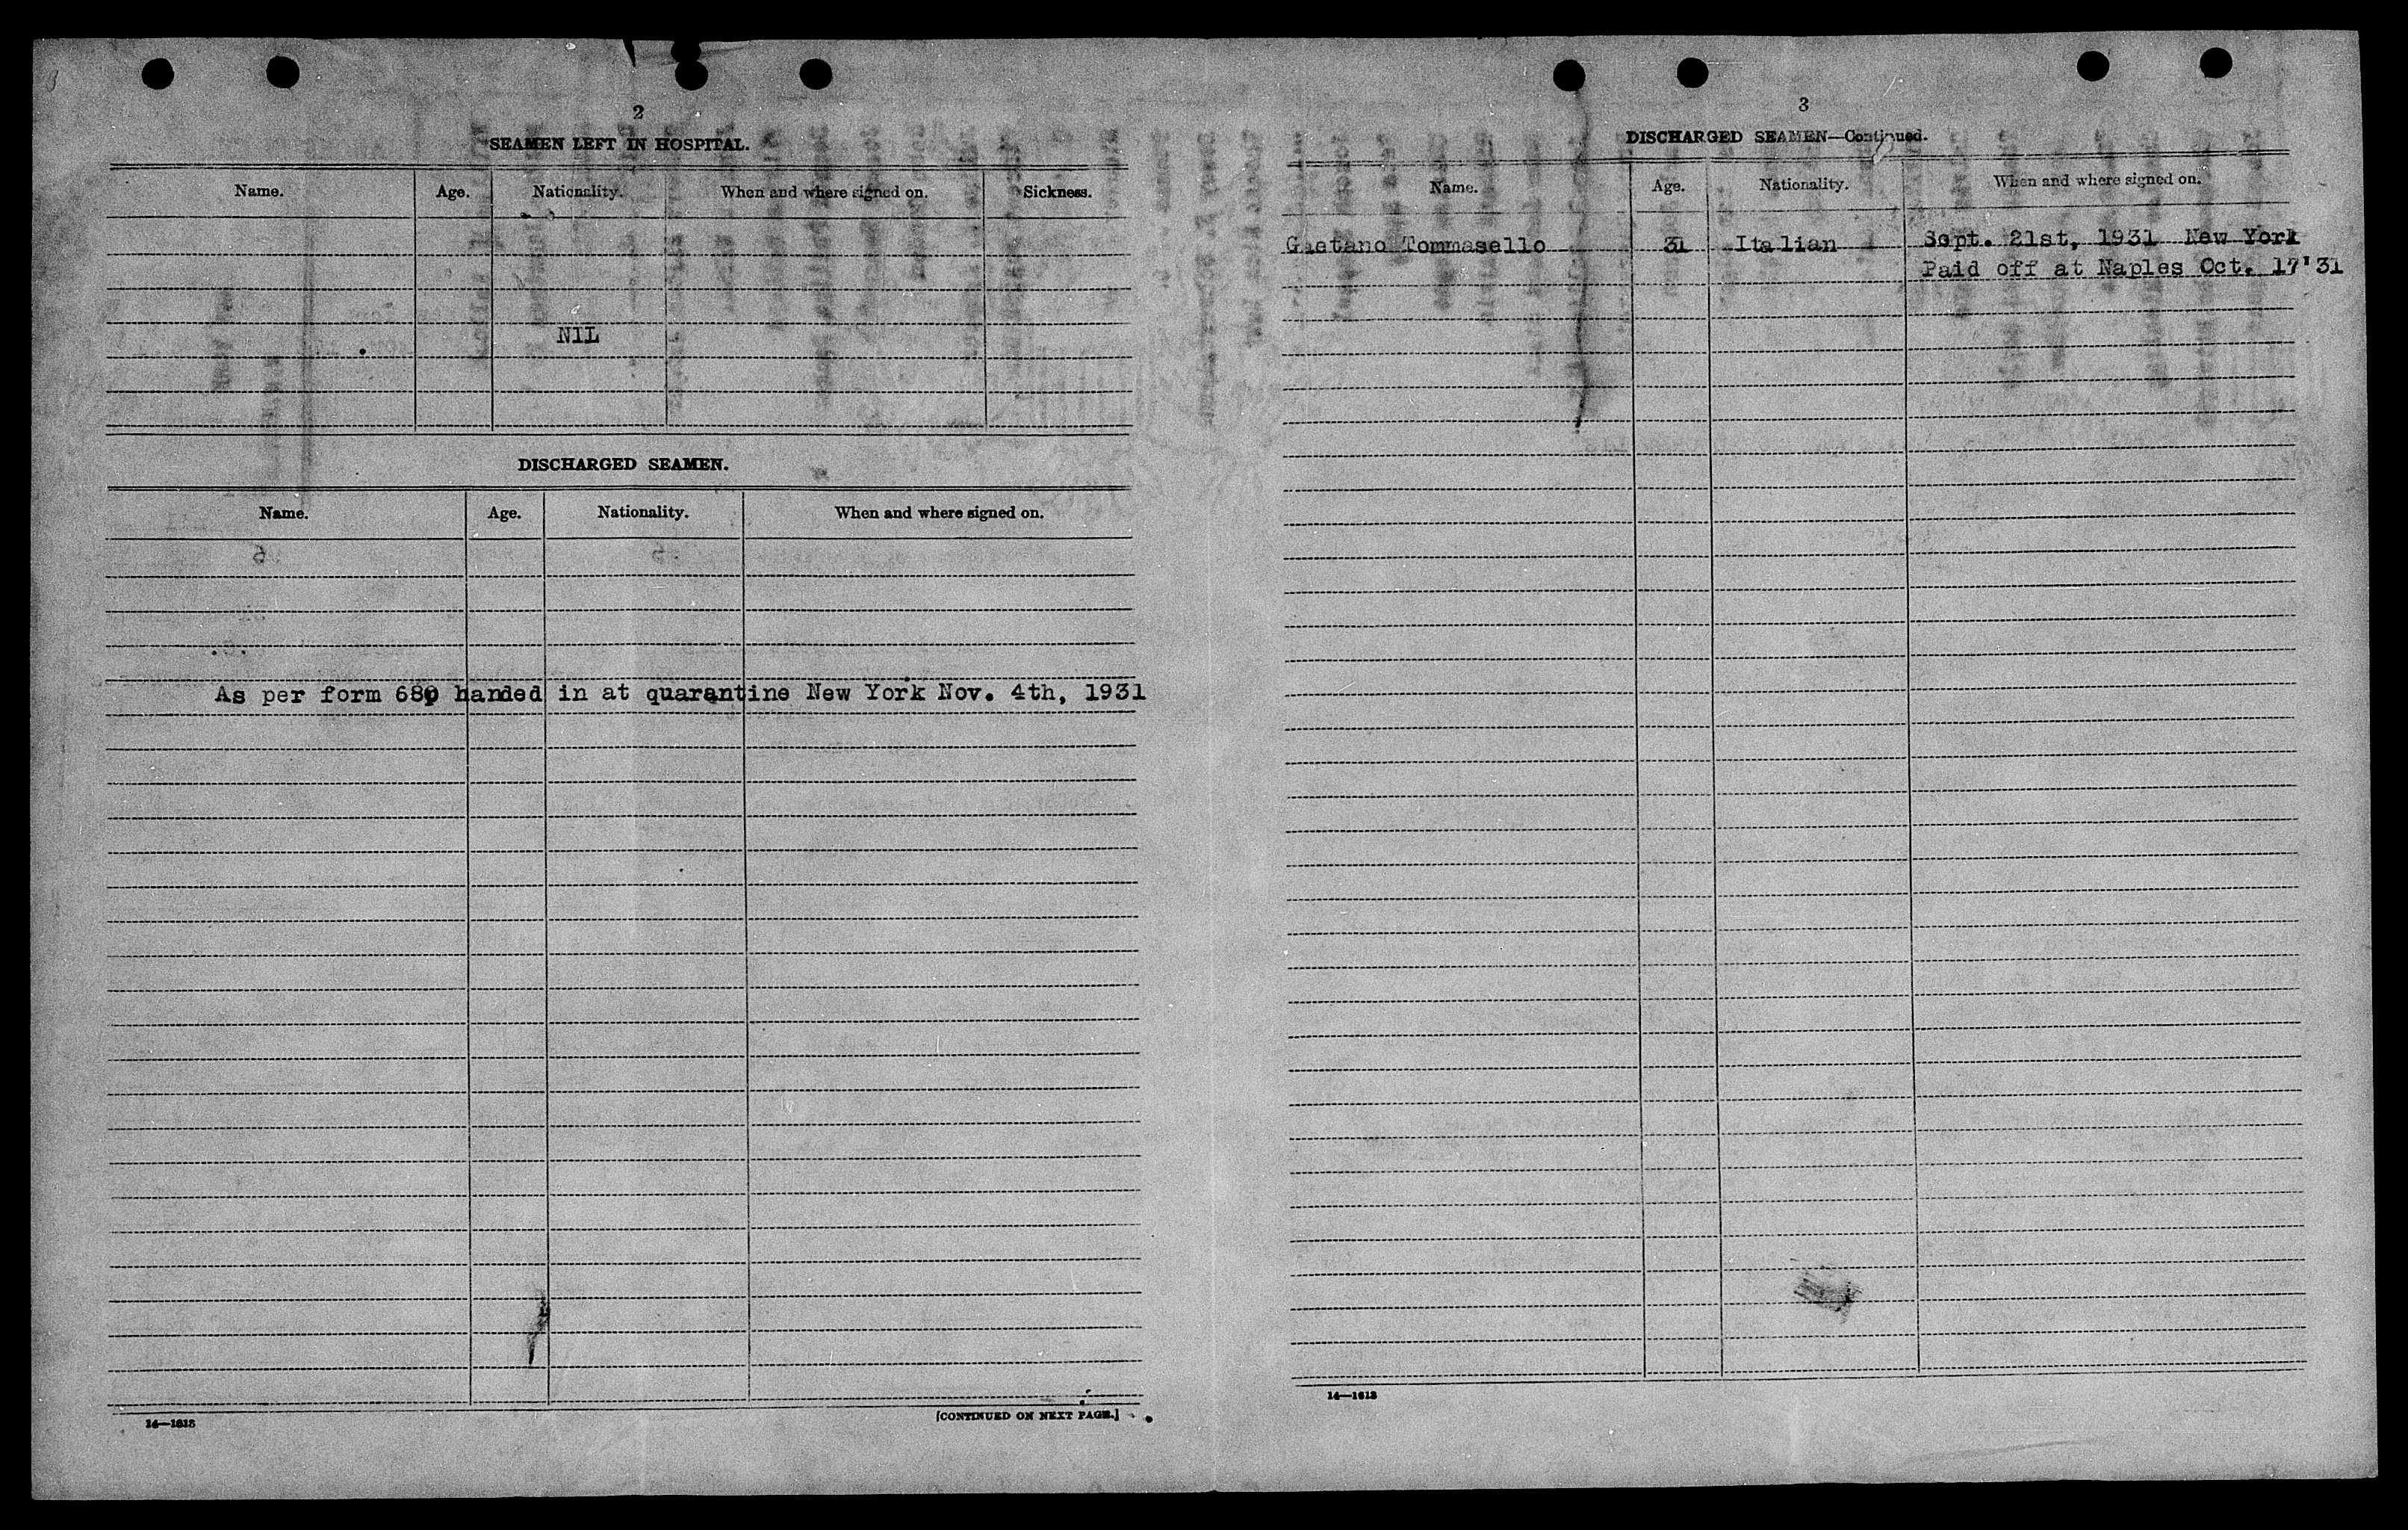 2
SEAMEN LEFT IN HOSPITAL.
Name. Age. Nationality. When and where signed on. Sickness.
N1L
DISCHARGED SEAMEN.
Name. Age. Nationality. When and where signed on.
As per form 689 handed in at quarantine New York Nov. 4th, 1931
14—1613
[CONTINUED ON NEXT PAGE.]
3
DISCHARGED SEAMEN—Continued.
Name. Age. Nationality. When and where signed on.
Gaetano Tommasello 31 Italian Sept. 21st, 1931 New York
Paid off at Naples Oct. 17'31
14—1613